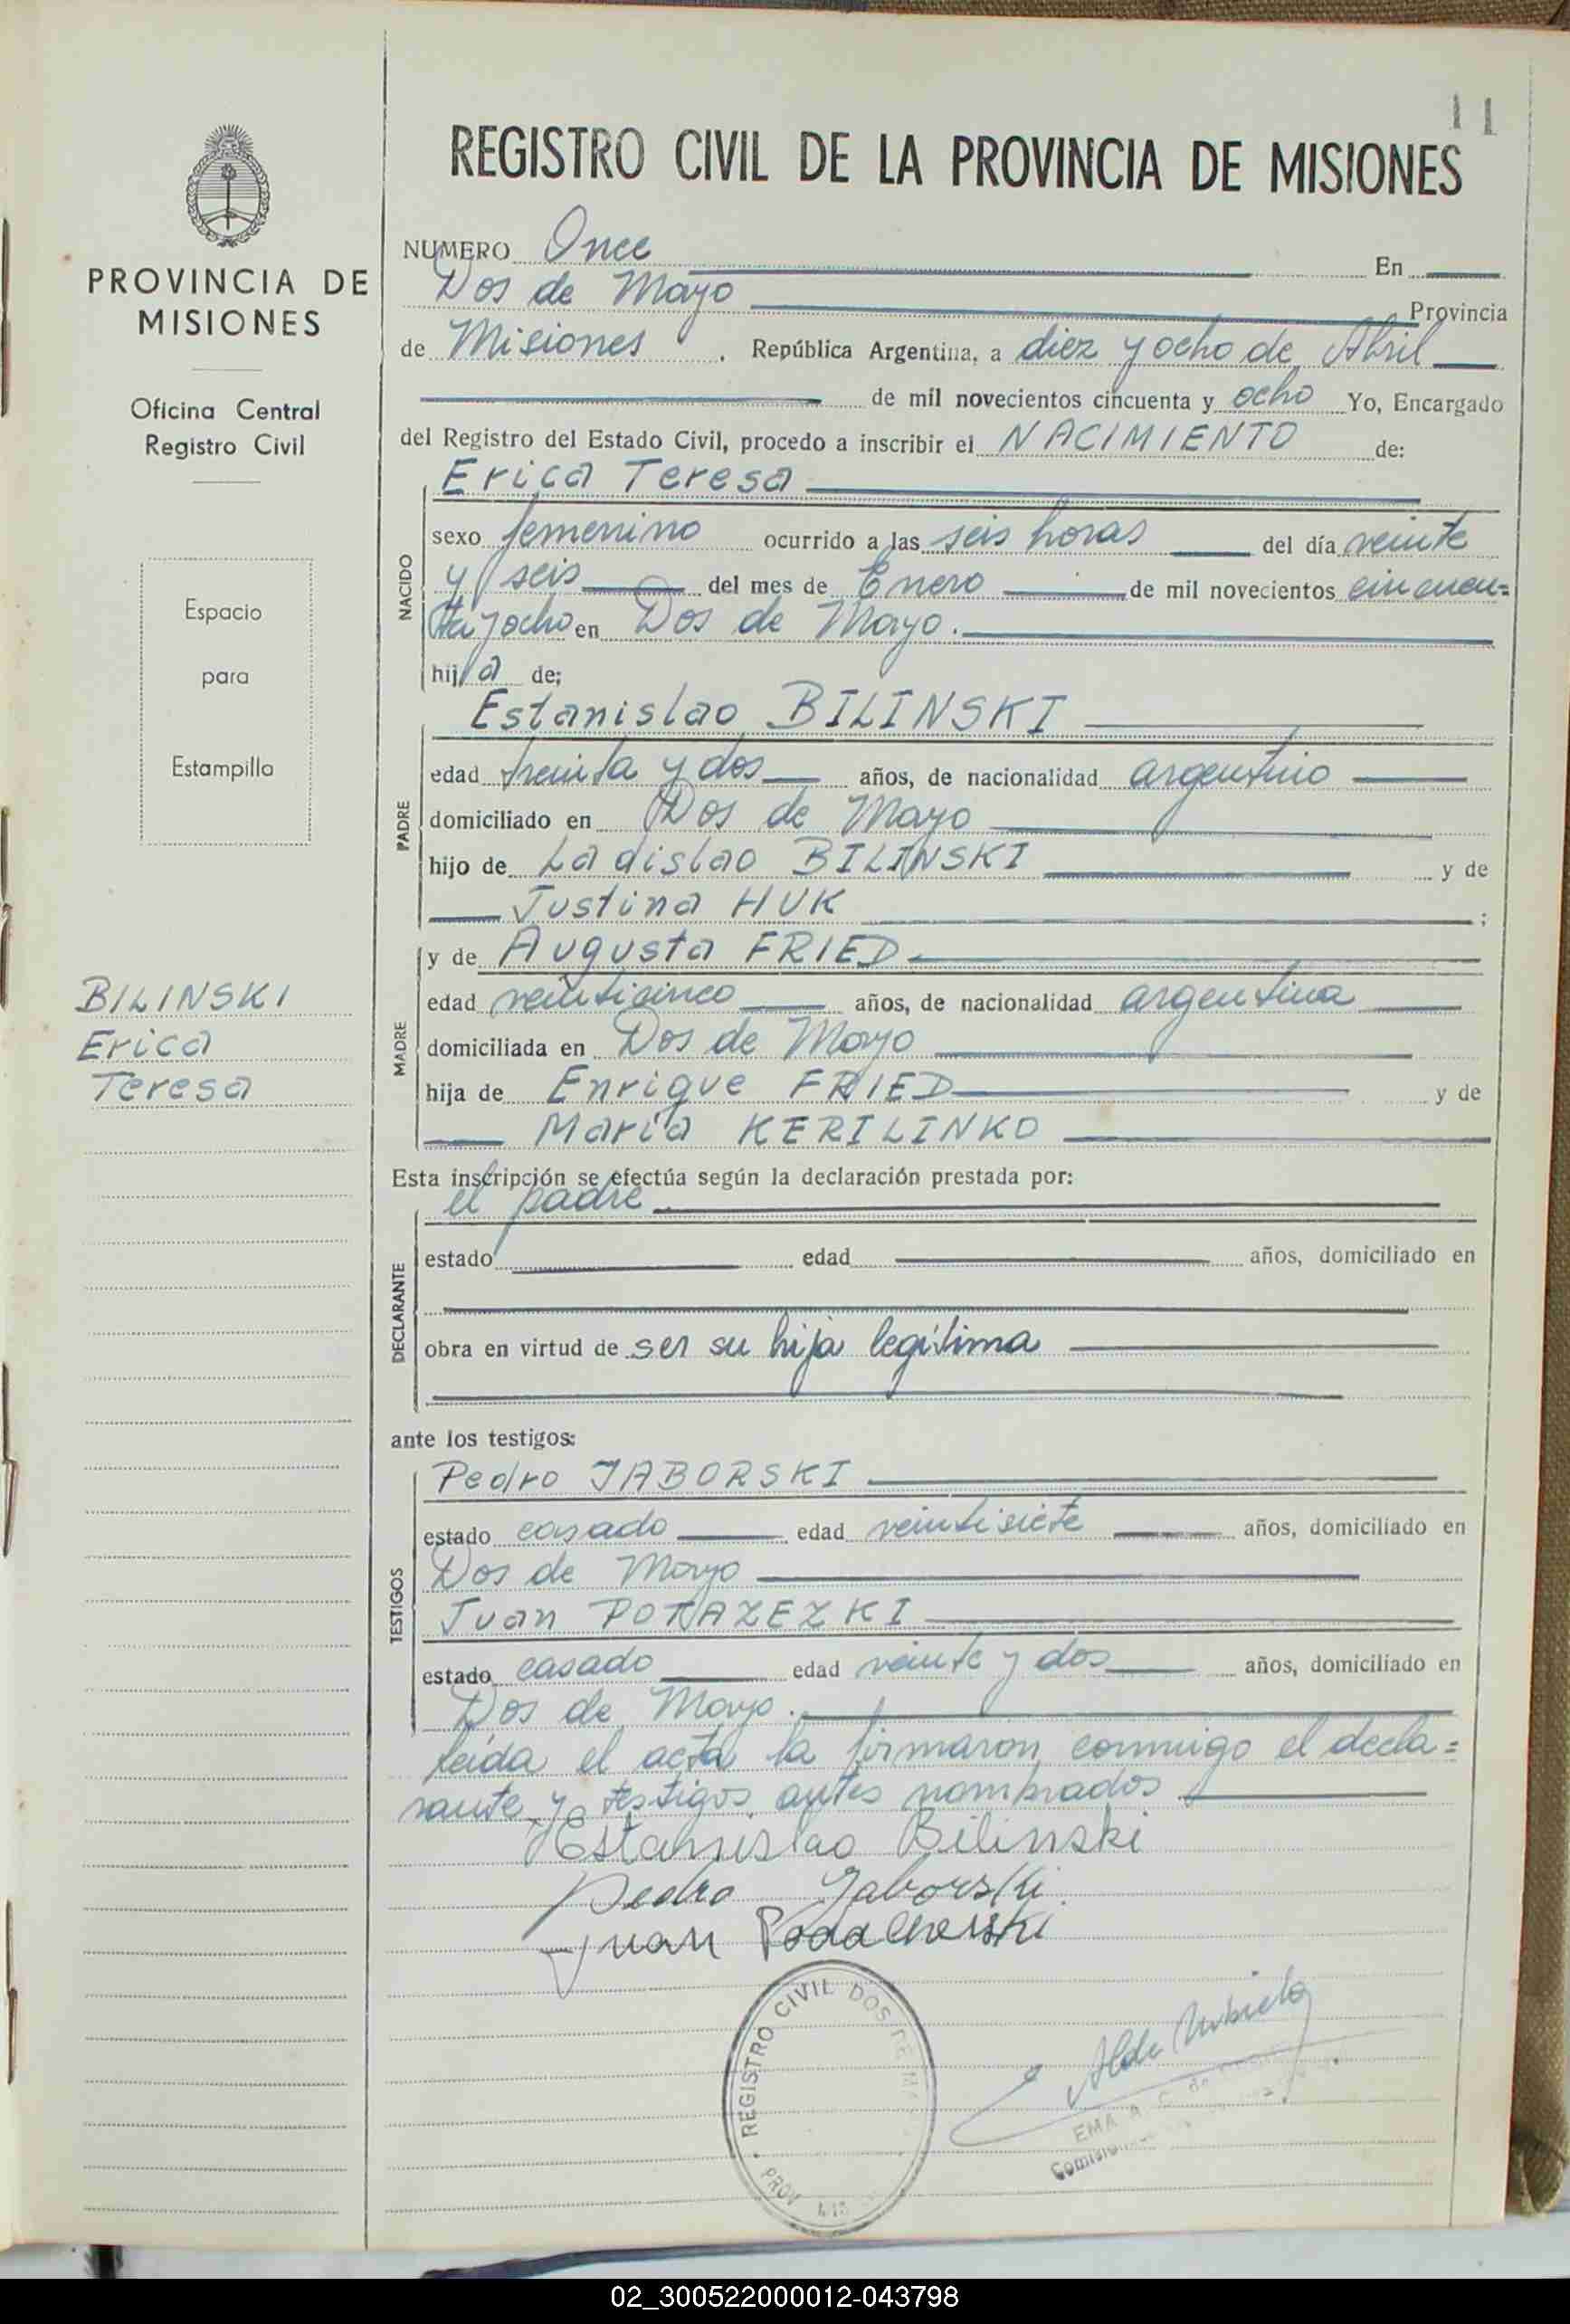 11
REGISTRO CIVIL DE LA PROVINCIA DE MISIONES
PROVINCIA DE
MISIONES
Oficina Central
Registro Civil
Espacio
para
Estampilla
BILINSKI
Erica
Teresa
NUMERO Once En
Dos de Mayo Provincia
de Misiones. República Argentina, a diez y ocho de Abril
de mil novecientos cincuenta y ocho Yo, Encargado
del Registro del Estado Civil, procedo a inscribir el NACIMIENTO de:
NACIDO
Erica Teresa
sexo femenino ocurrido a las seis horas del día veinte
y seis del mes de Enero de mil novecientos cincuen=
ta y ocho en Dos de Mayo.
hija de;
PADRE
Estanislao BILINSKI
edad treinta y dos años, de nacionalidad argentino
domiciliado en Dos de Mayo
hijo de Ladislao BILINSKI y de
Justina HUK ;
MADRE
y de Augusta FRIED
edad veinticinco años, de nacionalidad argentina
domiciliada en Dos de Mayo
hija de Enrique FRIED y de
Maria KERILINKO
Esta inscripción se efectúa según la declaración prestada por:
DECLARANTE
el padre
estado edad años, domiciliado en
obra en virtud de ser su hija legítima
ante los testigos:
TESTIGOS
Pedro JABORSKI
estado casado edad veintisiete años, domiciliado en
Dos de Mayo
Juan POTAZEZKI
estado casado edad veinte y dos años, domiciliado en
Dos de Mayo.
Leída el acta la firmaron conmigo el decla=
rante y testigos antes nombrados
Estanislao Bilinski
Pedro Jaborski
Juan
REGISTRO CIVIL DOS DE MAYO
PROV. MIS
02_300522000012-043798